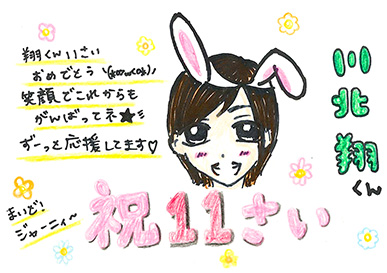 翔くん11さい
おめでとう\(*^ω^*)/
笑顔でこれからも
がんばってネ★ミ
ずーっと応援してます♡
川北翔くん
まいど!
ジャーニィ〜
祝11さい